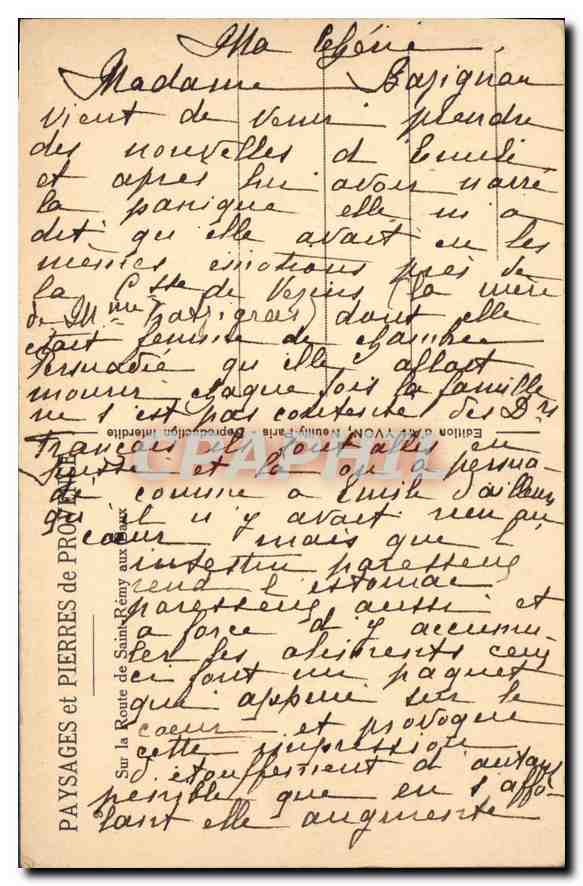 Ma Chérie,
Madame Bazignan
vient de venir prendre
des nouvelles d'Emile
et après lui avoir narré
la panique elle m'a
dit qu'elle avait eu les
mêmes émotions près de
la Csse de Vezins (la mère
de Mme ) dont elle
était femme de chambre
persuadée qu'elle allait
mourir chaque fois la famille
ne s'est pas contentée des Drs
Français ils sont allés en
Suisse et là on a persua-
dé comme à Emile d'ailleurs
qu'il n'y avait rien au
coeur mais que l'
intestin paresseux
rend l'estomac
paresseux aussi et
à force d'y accumu-
ler les aliments ceux
ci font un paquet
qui appuie sur le
coeur et provoque
cette impression
d'étouffement d'autant
pénible que en s'affo-
lant elle augmente
PAYSAGES et PIERRES de PROVENCE
Sur la Route de Saint-Rémy aux Baux
Edition d'Art YVON, Neuilly-Paris - Reproduction Interdite
CPARAMA